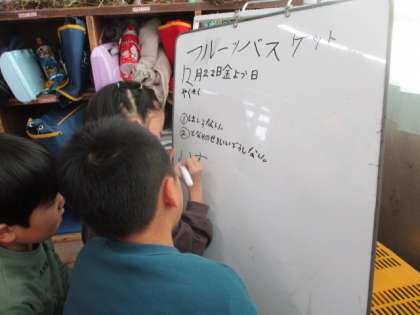 フルーツバスケット
12月22日金よう日
やくそく
①はしらない。
②となりのせきにいどうしない。